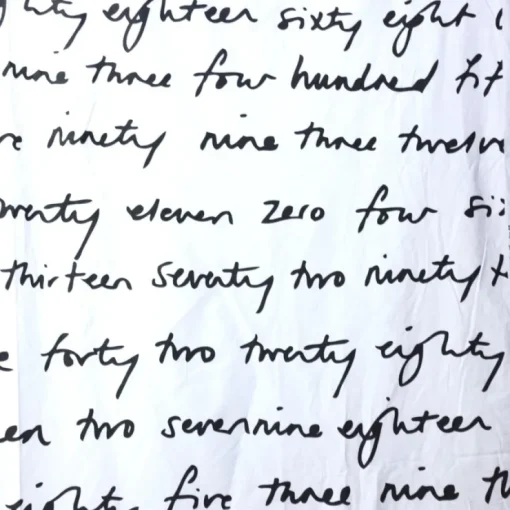 eighteen sixty eight
nine three four hundred
ninety nine three twelve
twenty eleven zero four
thirteen seventy two ninety
forty two twenty eighty
two sevennine eighteen
eighty five three nine